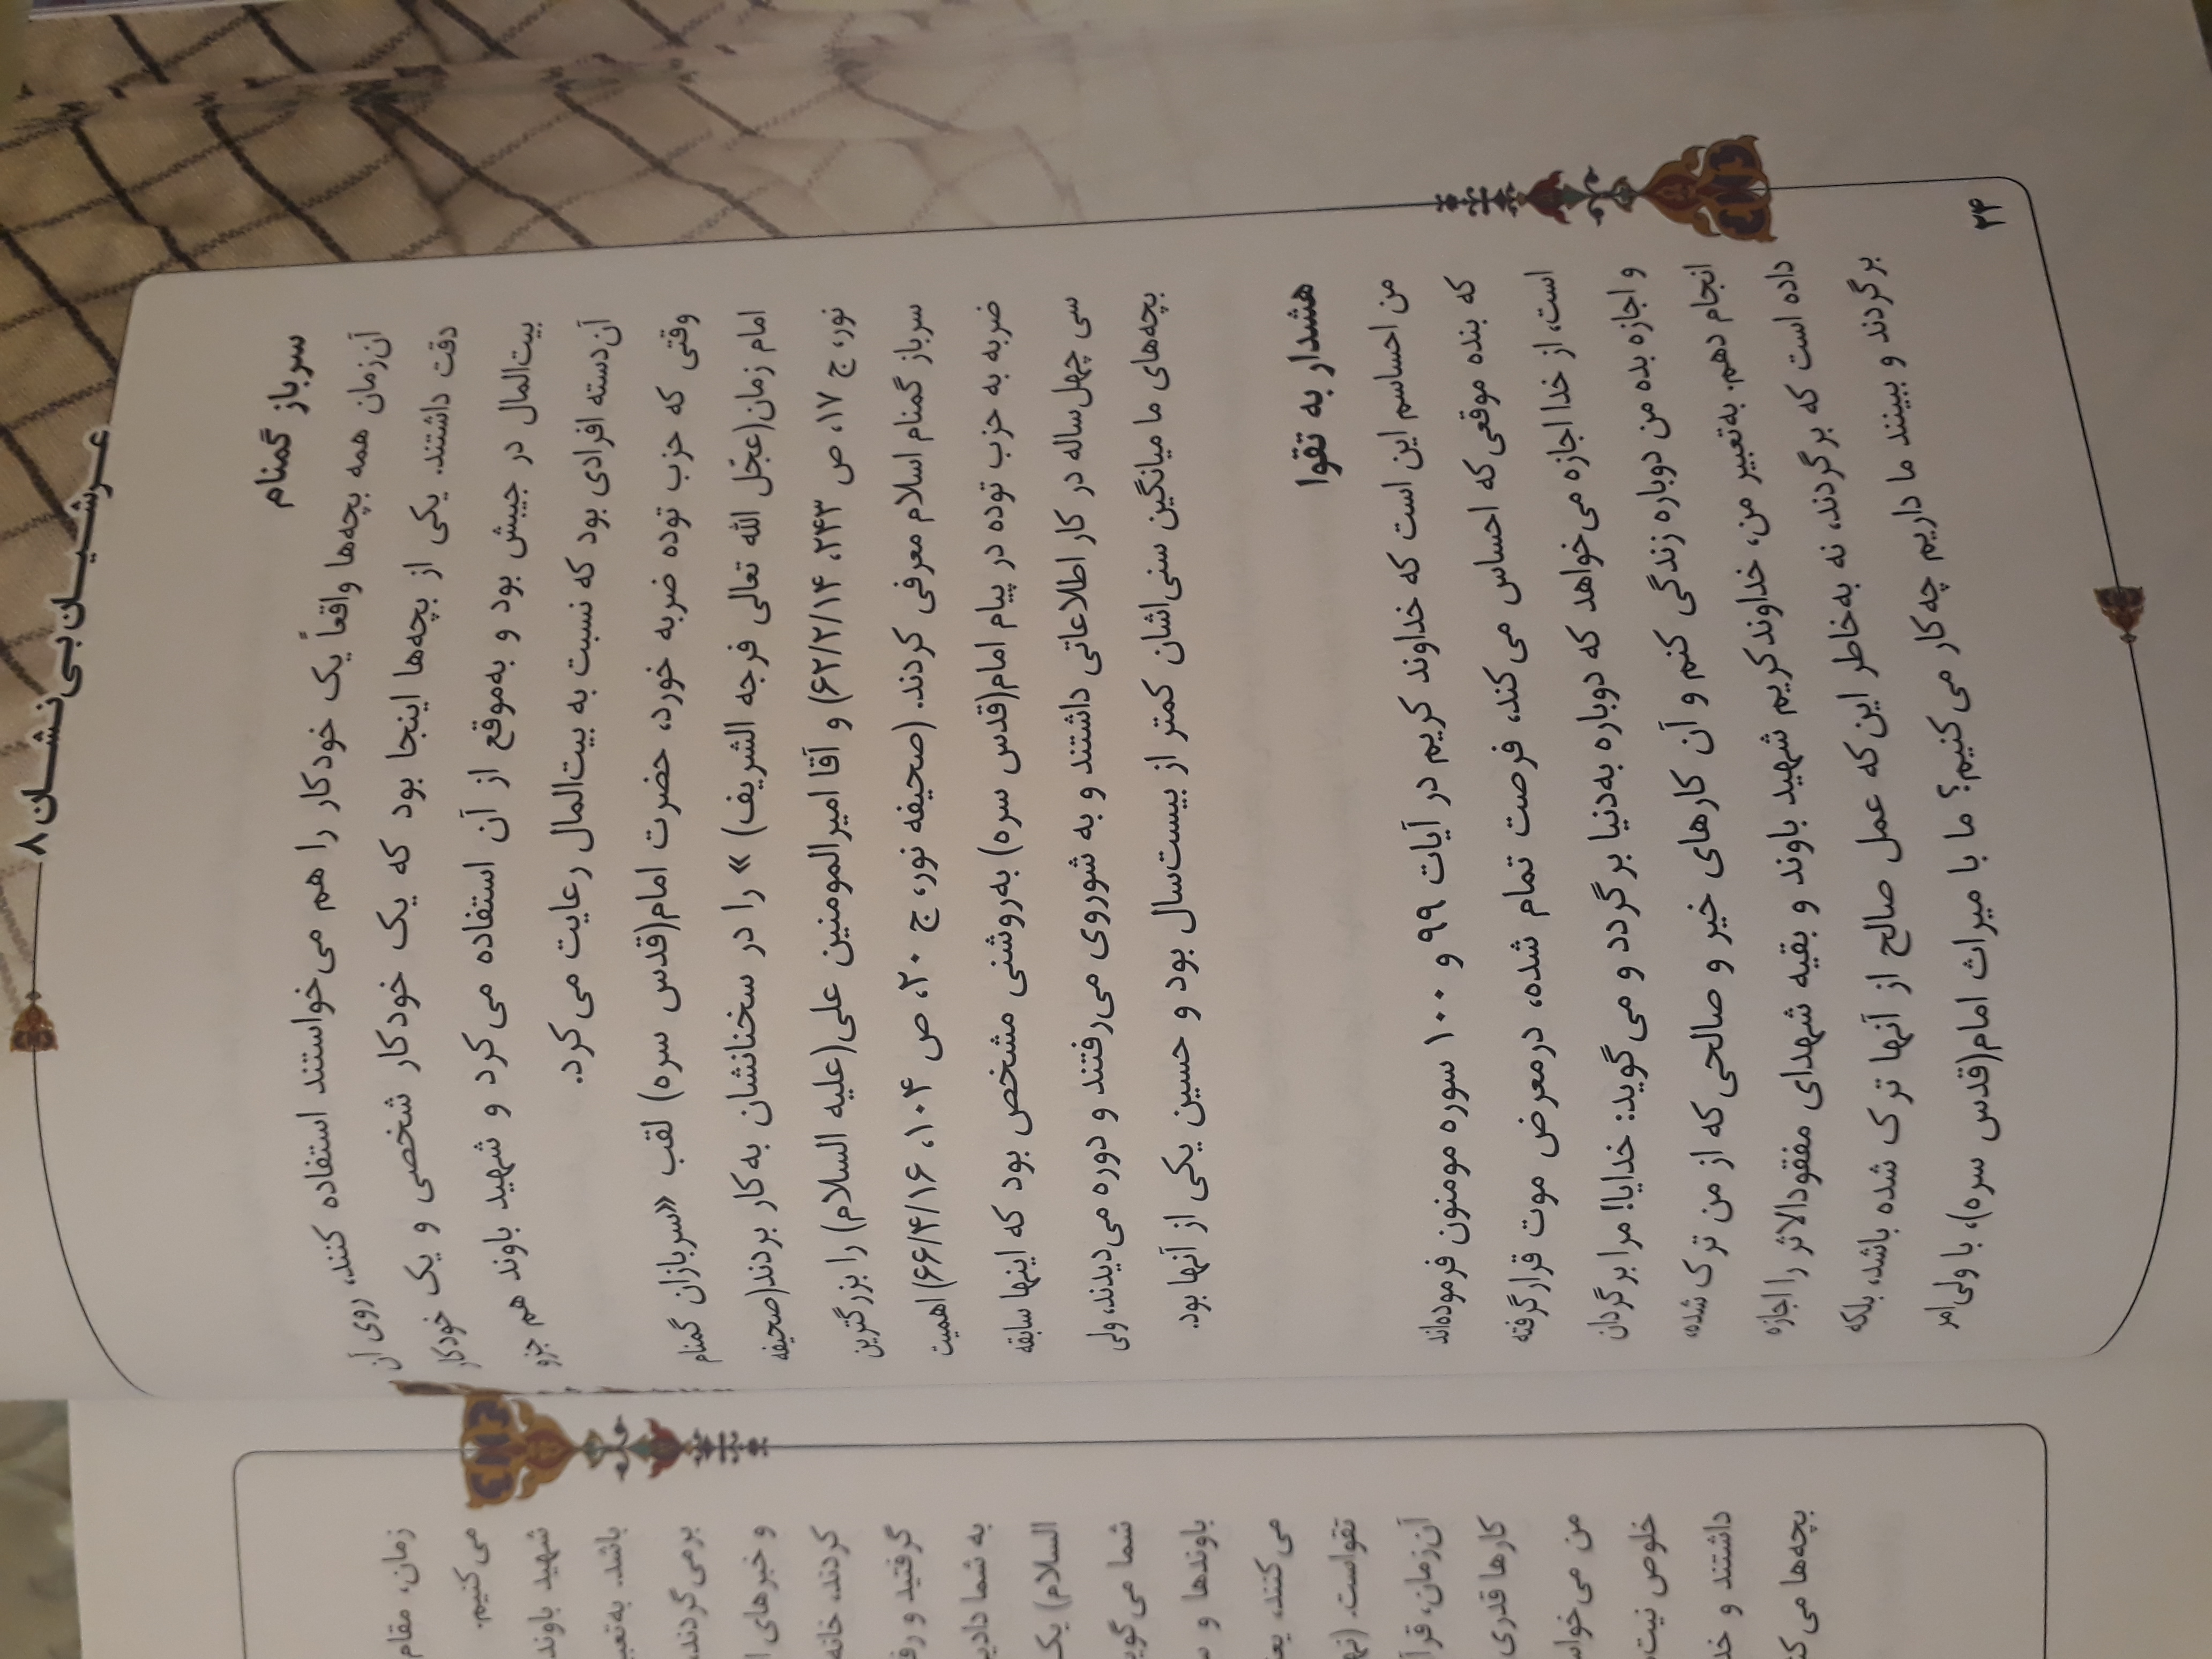 عرشیان بی نشان ۸
سرباز گمنام
آن‌زمان همه بچه‌ها واقعاً یک خودکار را هم می‌خواستند استفاده کنند، روی آن
دقت داشتند. یکی از بچه‌ها اینجا بود که یک خودکار شخصی و یک خودکار
بیت‌المال در جیبش بود و به‌موقع از آن استفاده می‌کرد و شهید باوند هم جزو
آن‌دسته افرادی بود که نسبت به بیت‌المال رعایت می‌کرد.
وقتی که حزب توده ضربه خورد، حضرت امام(قدس سره) لقب «سربازان گمنام
امام زمان(عجّل الله تعالی فرجه الشریف) » را در سخنانشان به‌کار بردند(صحیفه
نور، ج ۱۷، ص ۲۴۳، ۶۲/۲/۱۴) و آقا امیرالمومنین علی(علیه السلام) را بزرگترین
سرباز گمنام اسلام معرفی کردند. (صحیفه نور، ج ۲۰، ص ۱۰۴، ۶۶/۴/۱۶) اهمیت
ضربه به حزب توده در پیام امام(قدس سره) به‌روشنی مشخص بود که اینها سابقه
سی چهل‌ساله در کار اطلاعاتی داشتند و به شوروی می‌رفتند و دوره می‌دیدند، ولی
بچه‌های ما میانگین سنی‌اشان کمتر از بیست‌سال بود و حسین یکی از آنها بود.
هشدار به تقوا
من احساسم این است که خداوند کریم در آیات ۹۹ و ۱۰۰ سوره مومنون فرموده‌اند
که بنده موقعی که احساس می‌کند، فرصت تمام شده، درمعرض موت قرارگرفته
است، از خدا اجازه می‌خواهد که دوباره به‌دنیا برگردد و می‌گوید: خدایا! مرا برگردان
و اجازه بده من دوباره زندگی کنم و آن کارهای خیر و صالحی که از من ترک شده،
انجام دهم. به‌تعبیر من، خداوندکریم شهید باوند و بقیه شهدای مفقودالاثر را اجازه
داده است که برگردند، نه به‌خاطر این‌که عمل صالح از آنها ترک شده باشد، بلکه
برگردند و ببینند ما داریم چه‌کار می‌کنیم؟ ما با میراث امام(قدس سره)، با ولی‌امر
۲۴
زمان، مقام
می‌کنیم.
شهید باوند
باشد. به‌تعبیر
برمی‌گردند،
و خبرهای
کردند، خانه
گرفتید و
به شما
السلام) یک
شما
باوندها و
می‌کنند،
تقواست.
آن‌زمان،
کارها قدری
من
خلوص نیت
داشتند و
بچه‌ها